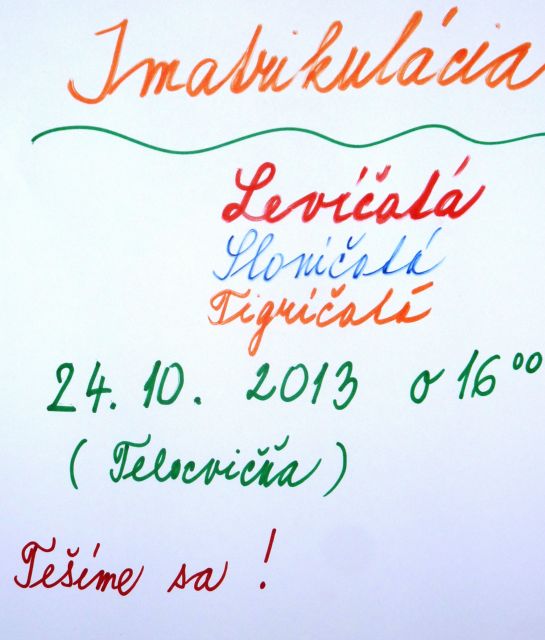 Imatrikulácia
Levíčatá
Sloníčatá
Tigríčatá
24. 10. 2013 o 16⁰⁰
( Telocvičňa )
Tešíme sa !